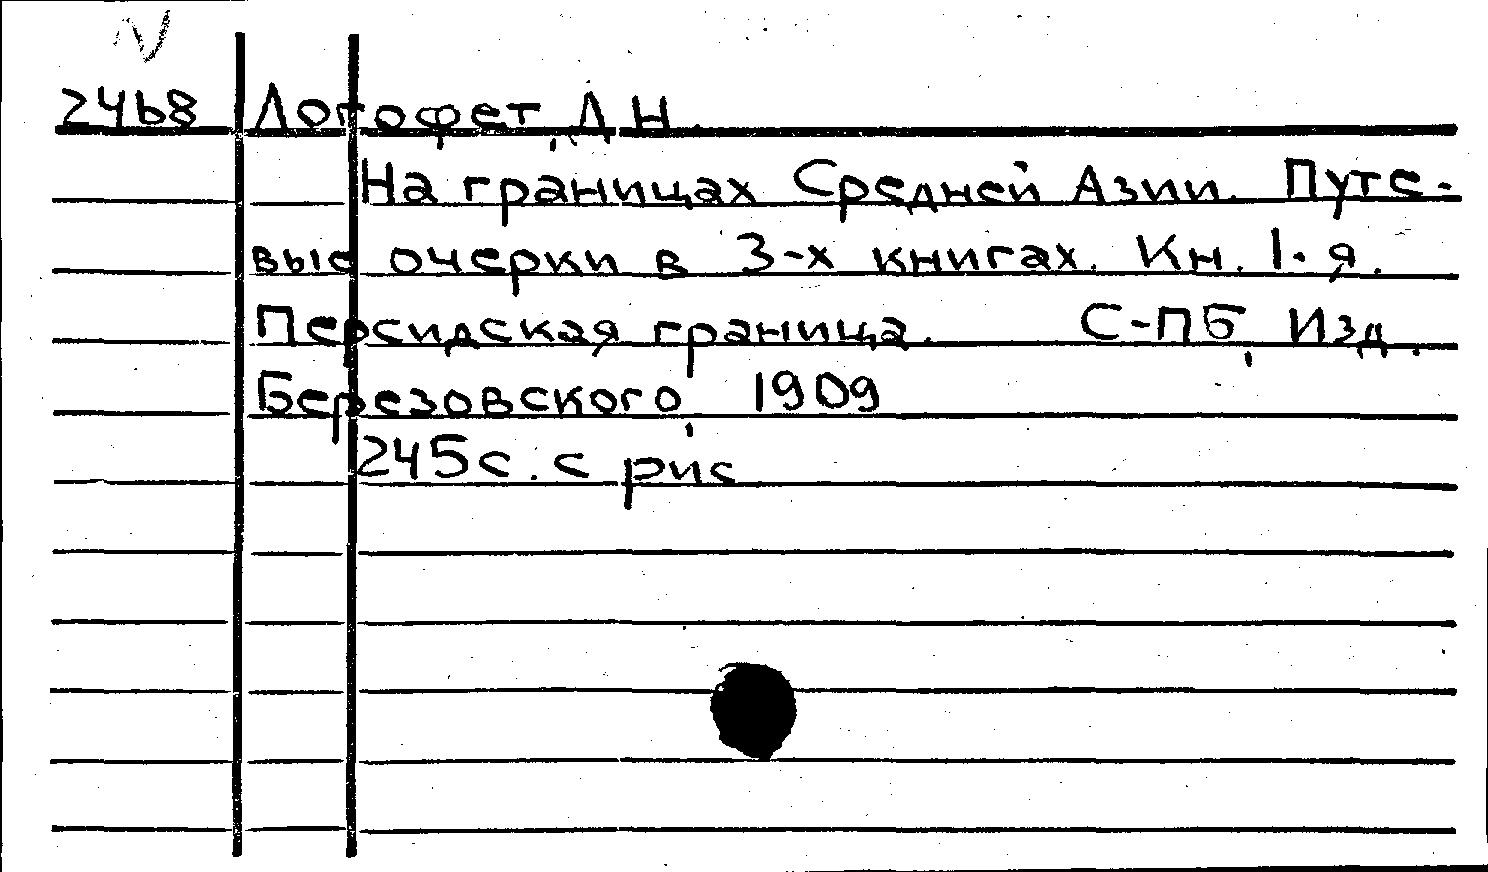 2468 Логофет, Д Н.
На границах Средней Азии. Путе-
вые очерки в 3-х книгах. Кн. I-я.
Персидская граница. С-ПБ, Изд.
Березовского, 1909
245с. с рис